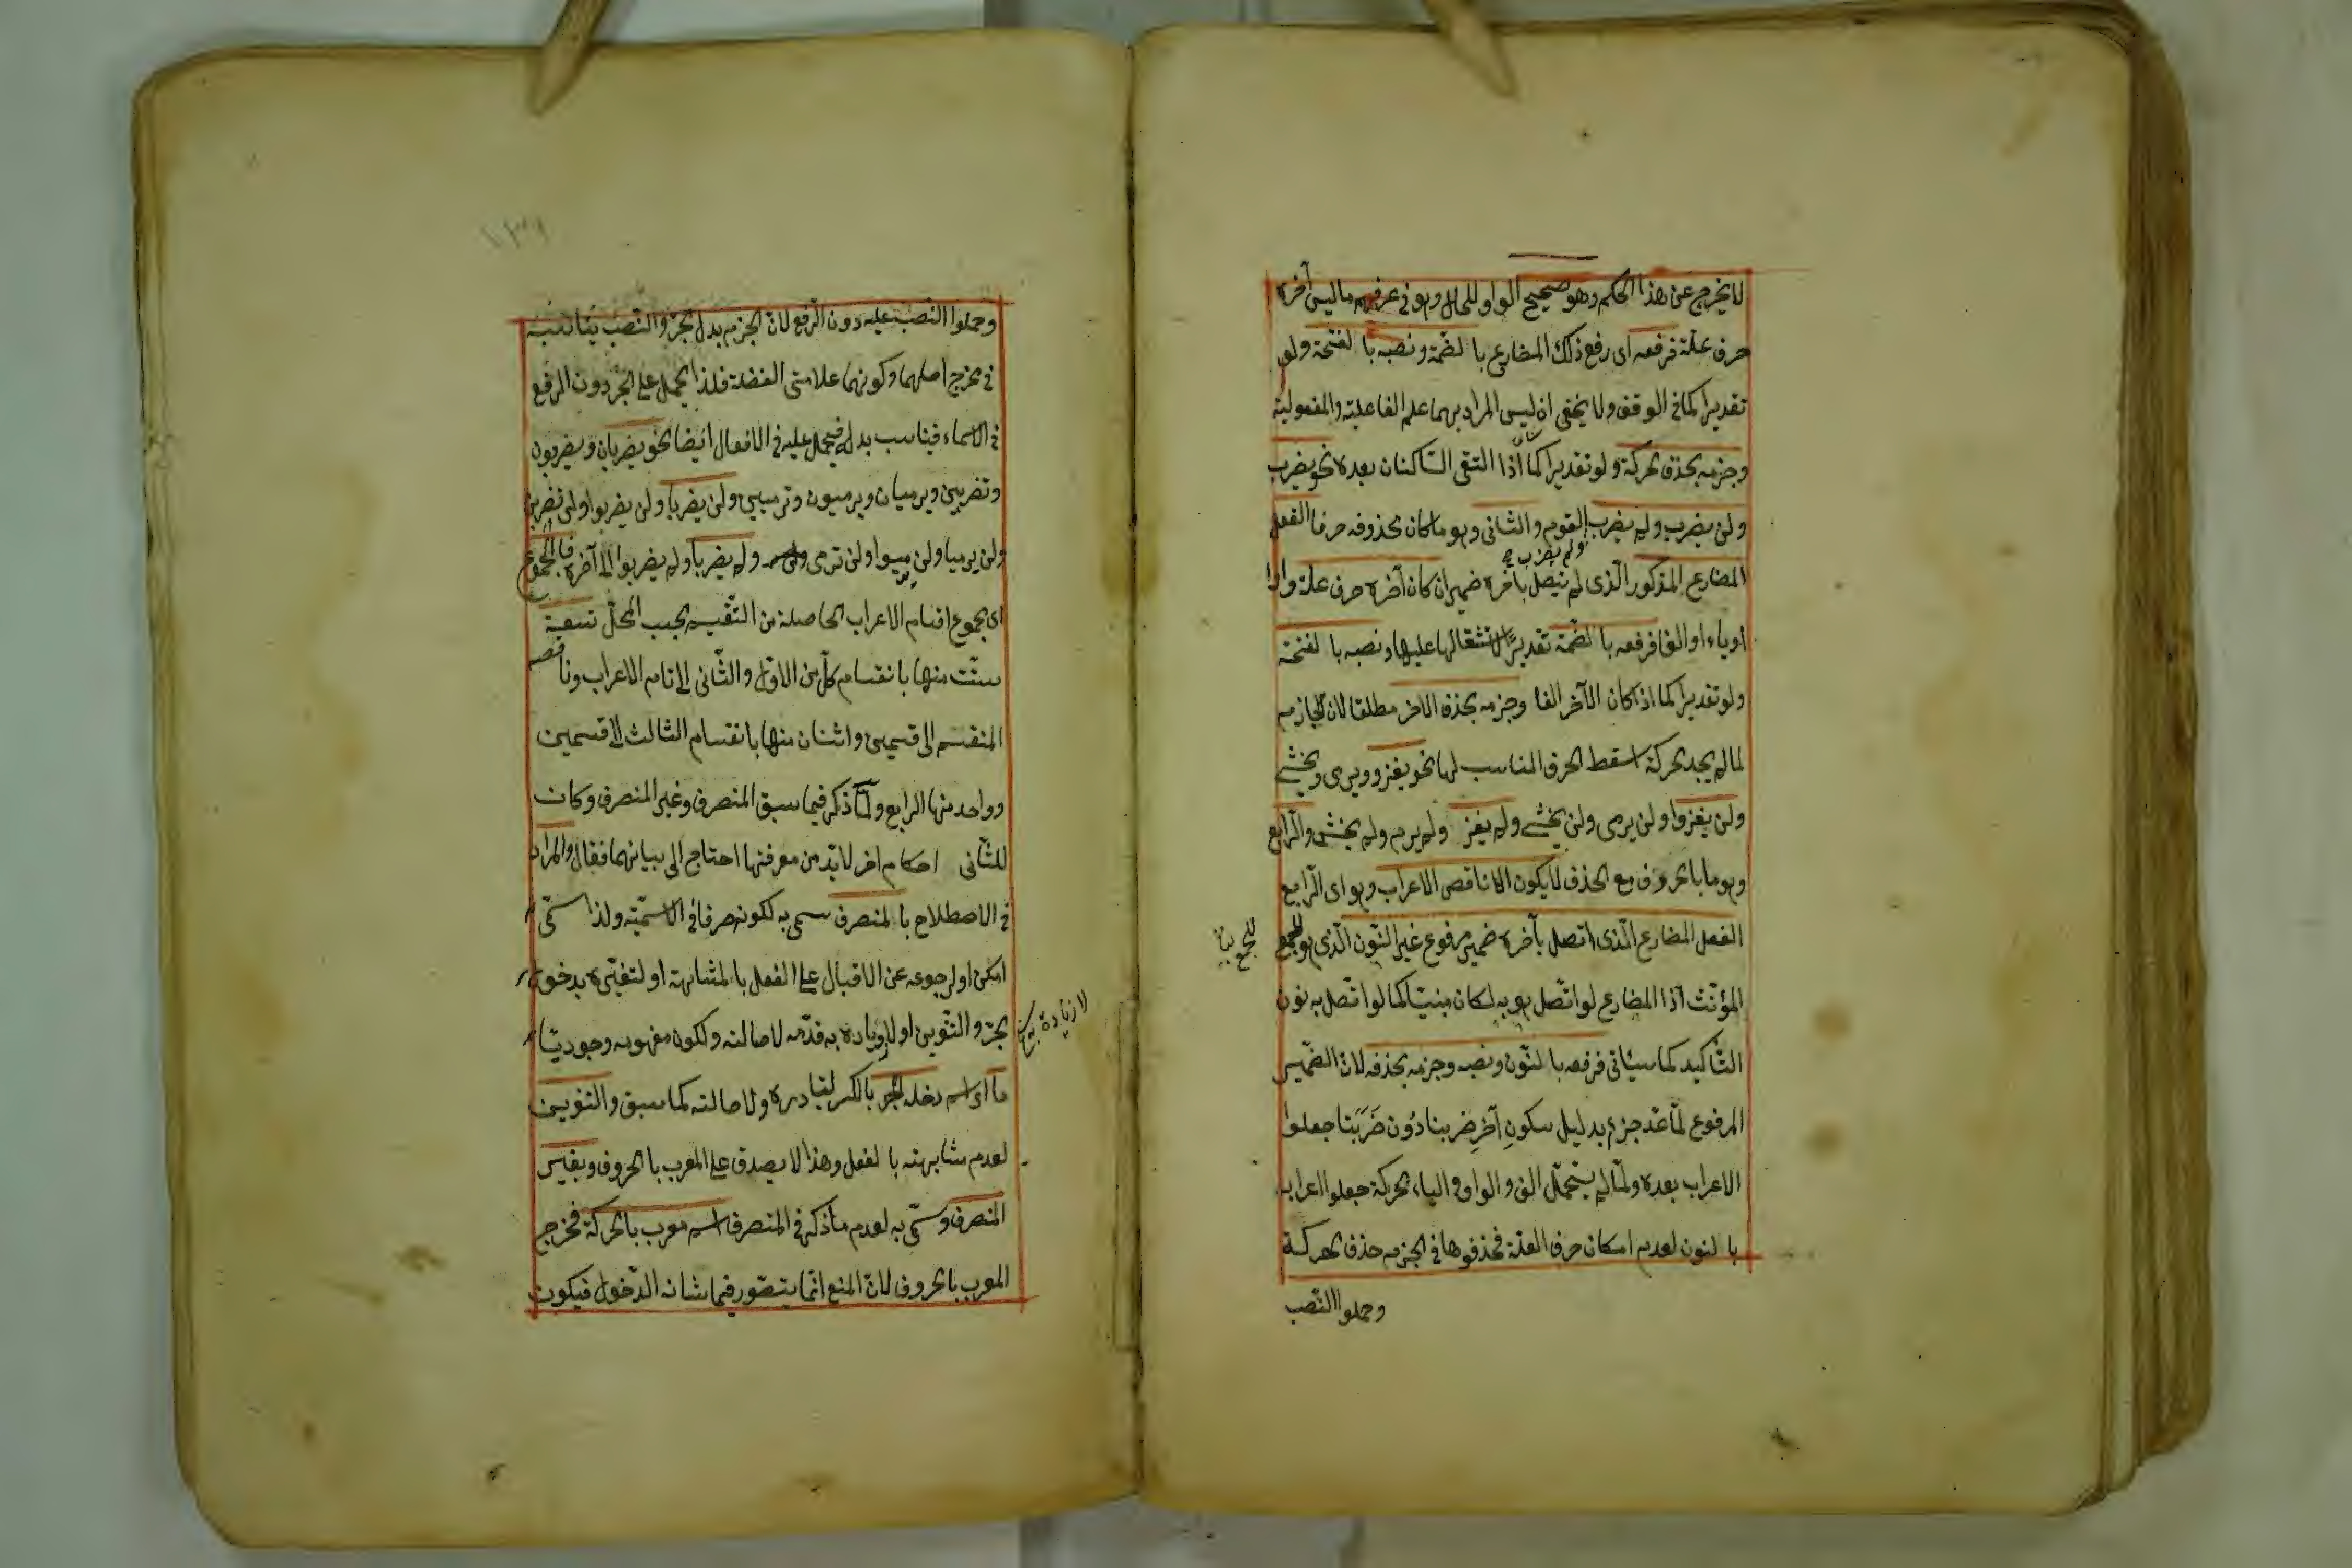 لا يخرج عن هذا الحكم وهو صحيح الواو للحال وهو في عرفهم ما ليس آخره
حرف علة فرفعه اى رفع ذلك المضارع بالضمة ونصبه بالفتحة ولو
تقديرا كما في الوقف ولا يخفى ان ليس المراد بهما علم الفاعلية والمفعولية
وجزمه بحذف الحركة ولو تقديرا كما اذا التقى الساكنان بعده نحو يضرب
ولن يضرب ولم يضرب القوم والثانى وهو ما كان محذوفه حرفا الفعل
ولم يضرب
المضارع المذكور الذى لم يتصل بآخره ضمير ان كان آخره حرف علة واوا
او ياء او الفا فرفعه بالضمة تقديرا لاستثقالها عليها ونصبه بالفتحة
ولو تقديرا كما اذا كان الآخر الفا وجزمه بحذف الاخر مطلقا لان الجازم
لما لم يجد حركة اسقط الحرف المناسب لها نحو يغزو ويرمى ويخشى
ولن يغزوا ولن يرمى ولن يخشى ولم يغز ولم يرم ولم يخش والرابع
وهو ما بالحروف مع الحذف لا يكون الا ناقص الاعراب وهو اى الرابع
الفعل المضارع الذى اتصل بآخره ضمير مرفوع غير النون الذى هو للجمع
المؤنث اذا المضارع لو اتصل هو به لكان مبنيا كما لو اتصل به نون
التأكيد كما سيأتى فرفعه بالنون ونصبه وجزمه بحذفه لان الضمير
المرفوع لما عد جزء بدليل سكون آخر ضربنا دون ضربنا جعلوا
الاعراب بعده ولما لم يتحمل الف والواو والياء الحركة جعلوا اعرابه
بالنون لعدم امكان حرف العلة فحذفوها في الجزم حذف الحركة
وحملوا النصب
وحملوا النصب عليه دون الرفع لان الجزم بدل الجر والنصب يناسبه
في مخرج اصلهما وكونهما علامتى الفضلة فلذا يحمل على الجر دون الرفع
في الاسماء فيناسب بدله فيحمل عليه في الافعال ايضا نحو يضربان ويضربون
وتضربين ويرميان ويرميون وترميين ولن يضربا ولن يضربوا ولن تضربى
ولن يرميا ولن يرميوا ولن ترمى ولم يضربا ولم يضربوا الى آخره فالمجموع
اى مجموع اقسام الاعراب الحاصلة من التقسيم بحسب المحل تسعة
ستت منها بانقسام كل من الاول والثانى الى تام الاعراب وناقصه
المنقسم الى قسمين واثنان منها بانقسام الثالث الى قسمين
وواحد منها الرابع ولما ذكر فيما سبق المنصرف وغير المنصرف وكان
للثانى احكام اخر لا بد من معرفتها احتاج الى بيانهما فقال والمراد
في الاصطلاح بالمنصرف سمى به لكونه صرفا في الاسمية ولذا سمى
امكن او لرجوعه عن الاقبال على الفعل بالمشابهة او لتغيره بدخول
الجر والتنوين او لازياده به قدمه لاصالته ولكون مفهومه وجوديا
ما اى اسم دخله الجر بالكسر لتبادره ولاصالته كما سبق والتنوين
لعدم مشابهته بالفعل وهذا لا يصدق على المعرب بالحروف وبغير
المنصرف وسمى به لعدم ما ذكر في المنصرف اسم معرب بالحركة فخرج
المعرب بالحروف لان المنع انما يتصور فيما شانه الدخول فيكون